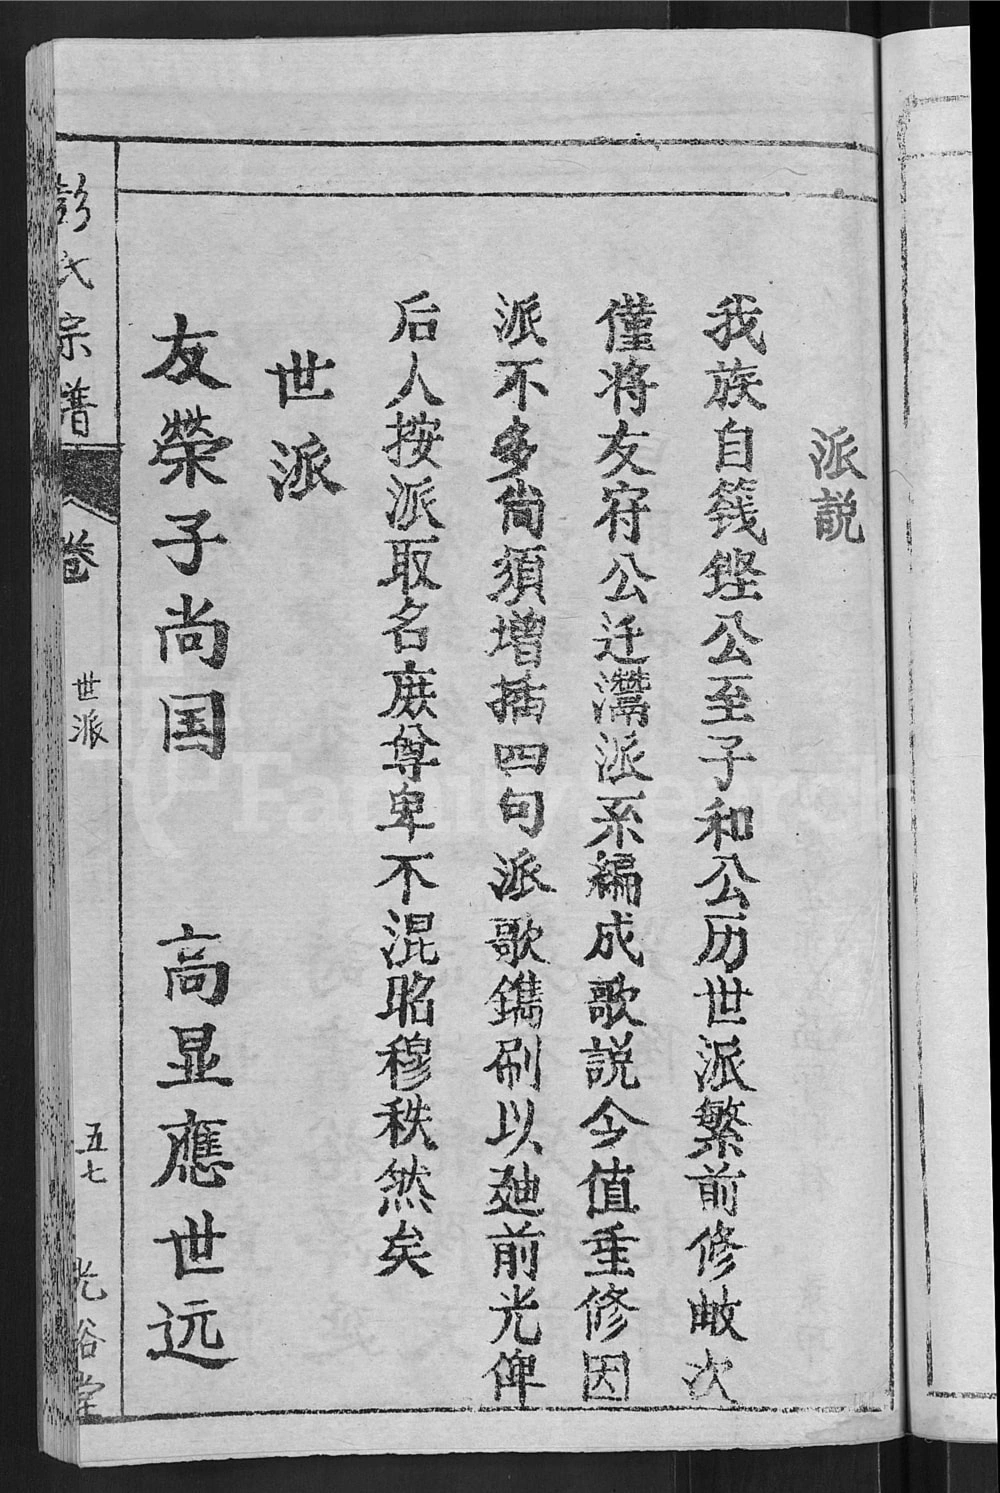 派説
我族自籛鏗公至子和公历世派繁前修畝次
僅将友府公迁灊派系編成歌説今值重修因
派不多尚須增插四句派歌鐫刷以廸前光俾
后人按派取名庶尊卑不混昭穆秩然矣
世派
友榮子尚国 高显應世远
彭氏宗譜 卷 世派 五七 光裕堂